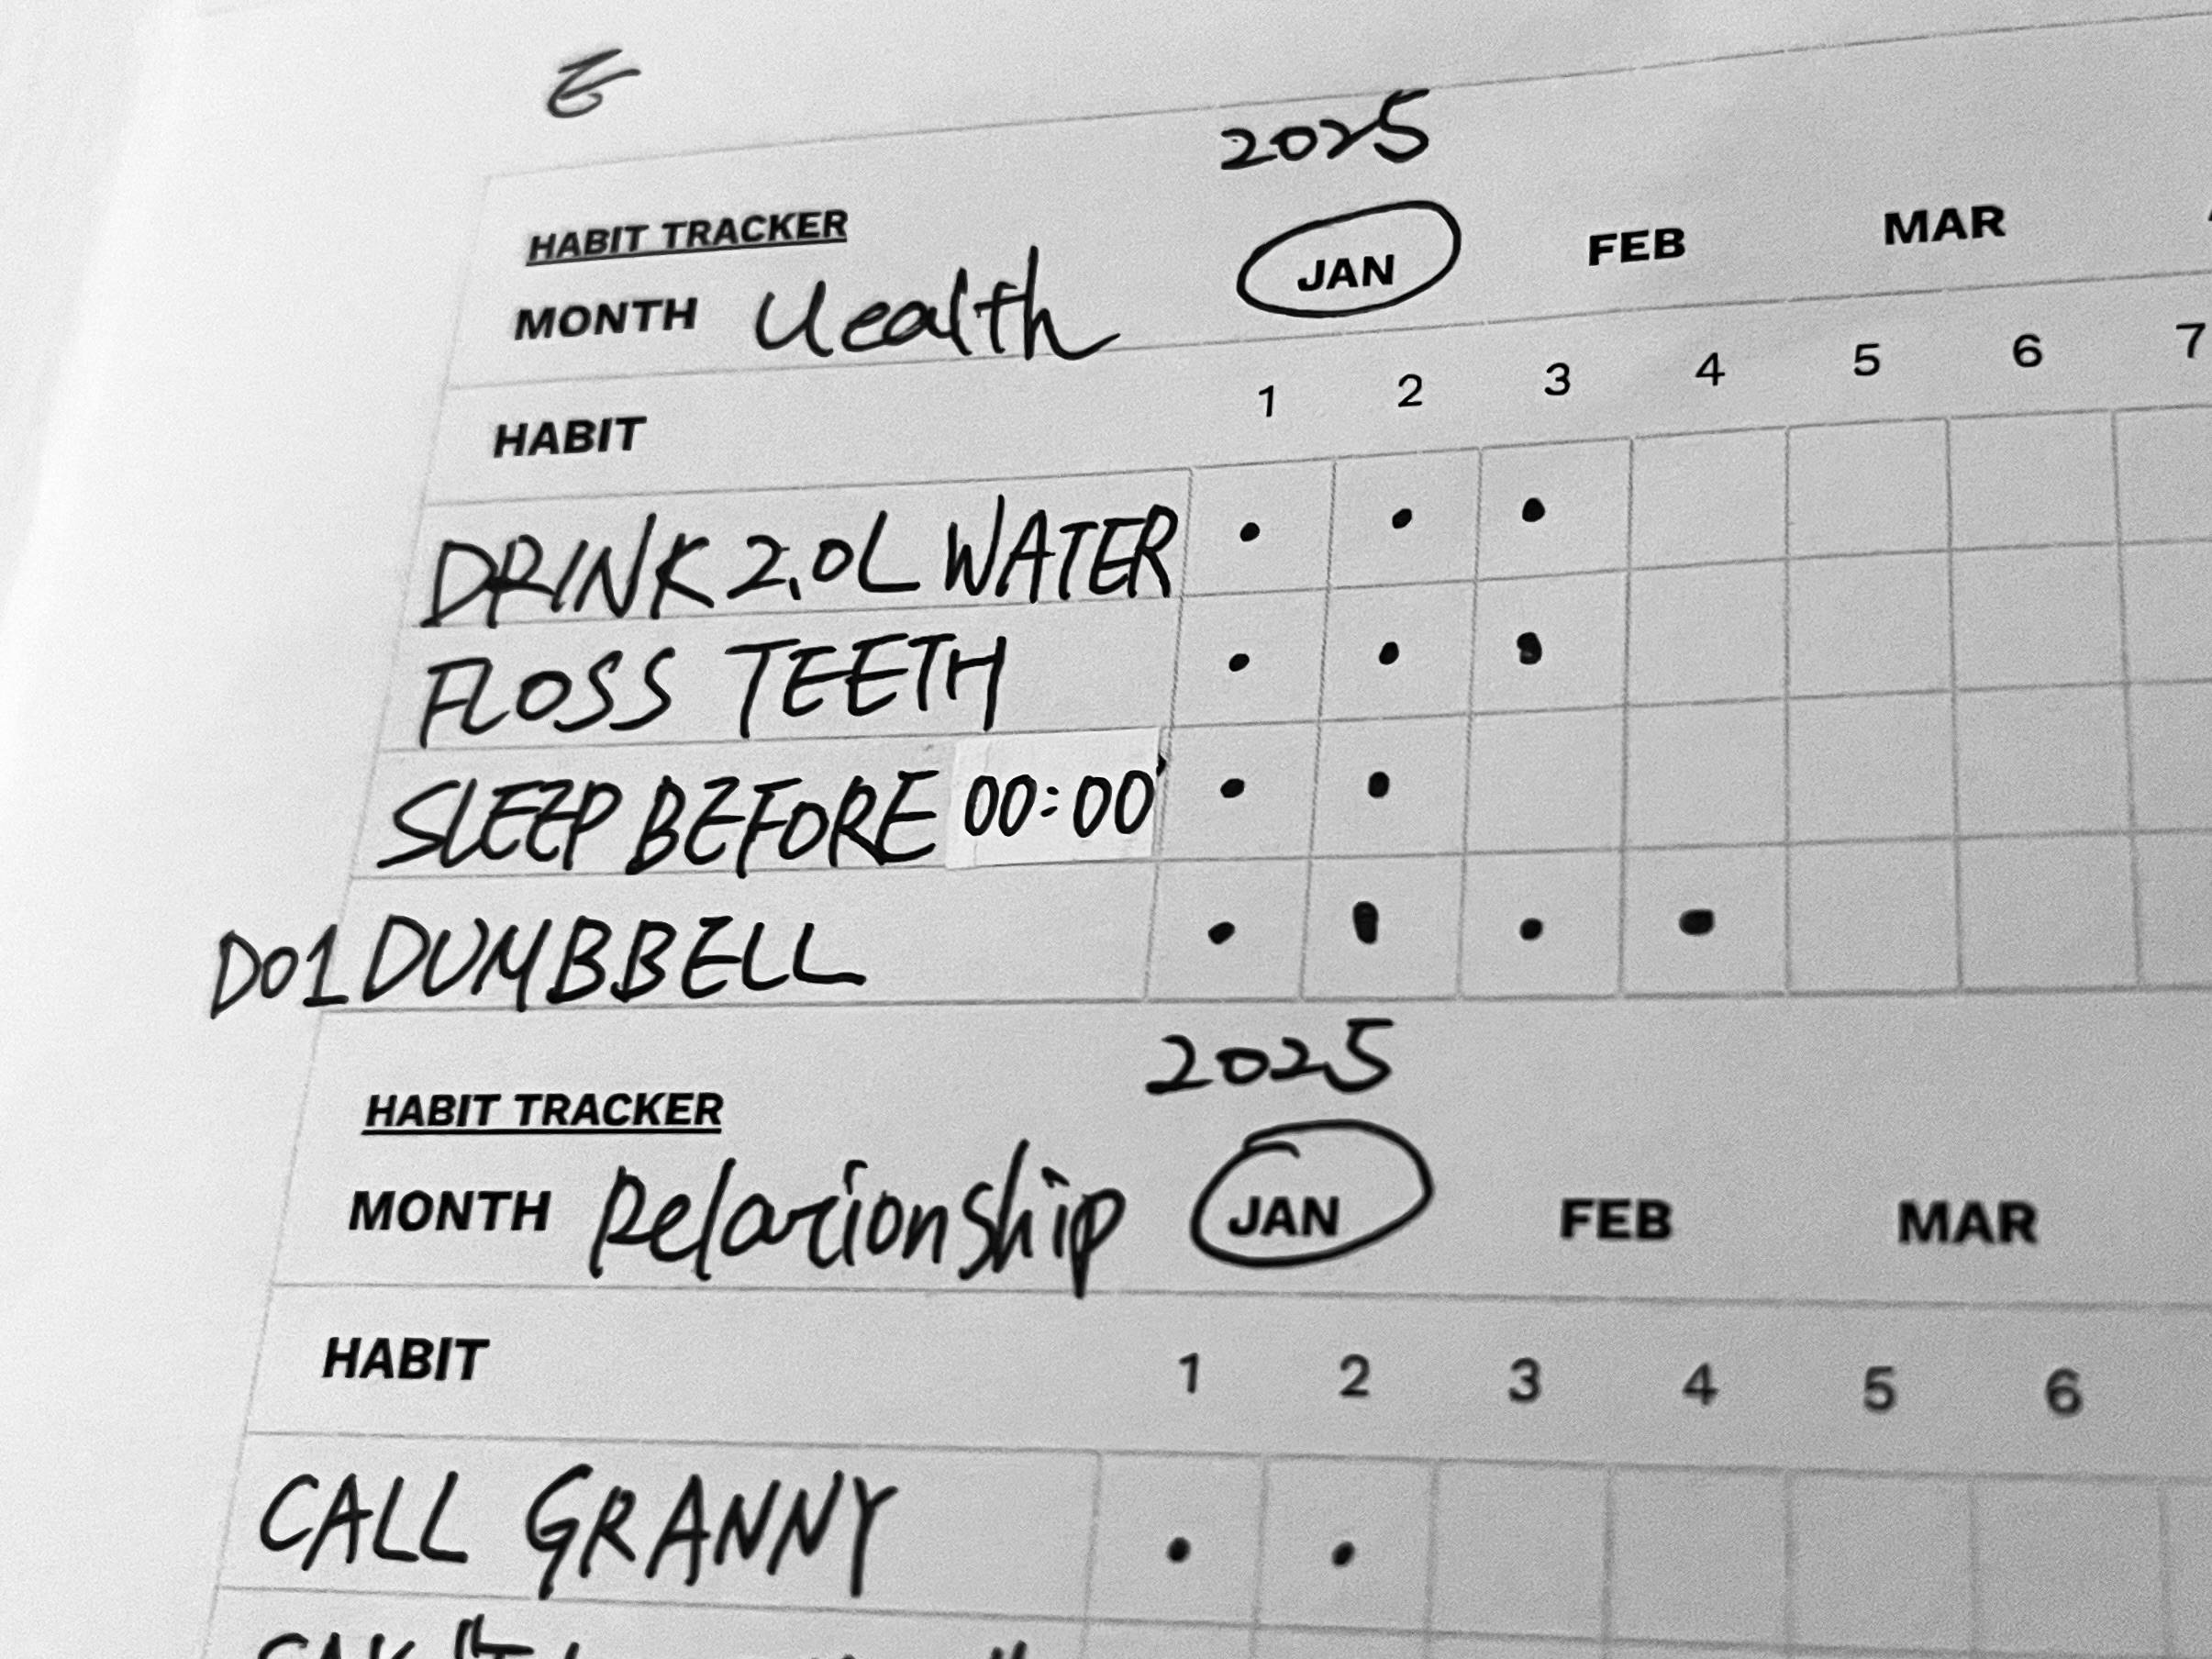 2025
HABIT TRACKER
JAN FEB MAR
MONTH Health
1 2 3 4 5 6 7
HABIT
DRINK 2.0L WATER
FLOSS TEETH
SLEEP BEFORE 00:00
DO 1 DUMBBELL
2025
HABIT TRACKER
MONTH Relationship JAN FEB MAR
HABIT 1 2 3 4 5 6
CALL GRANNY